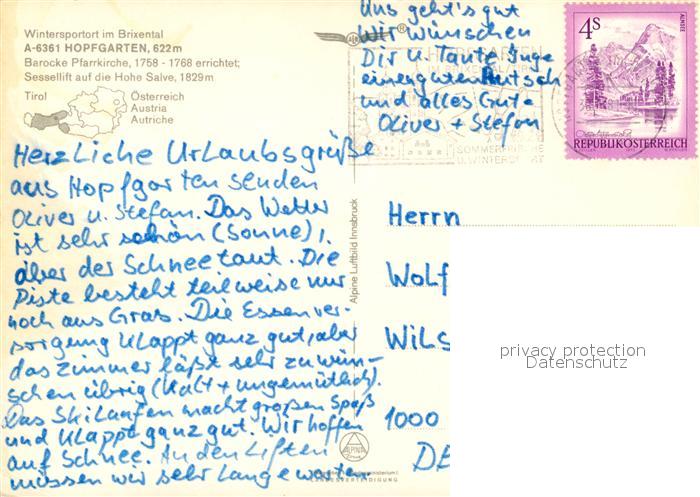 Wintersportort im Brixental
A-6361 HOPFGARTEN, 622m
Barocke Pfarrkirche, 1758 - 1768 errichtet;
Sessellift auf die Hohe Salve, 1829m
Tirol
Österreich
Austria
Autriche
Herzliche Urlaubsgrüße
aus Hopfgarten senden
Oliver u. Stefan. Das Wetter
ist sehr schön (Sonne),
aber der Schnee taut. Die
Piste besteht teilweise nur
noch aus Gras. Die Essenver-
sorgung klappt ganz gut, aber
das Zimmer läßt sehr zu wün-
schen übrig (kalt + ungemütlich).
Das Skilaufen macht großen Spaß
und klappt ganz gut. Wir hoffen
auf Schnee. An den Liften
müssen wir sehr lange warten.
Uns geht's gut
Wir wünschen
Dir u. Tante Inge
einen guten Rutsch
und alles Gute
Oliver + Stefan
HOPFGARTEN
SOMMERFRISCHE
U. WINTERSPORT
4S
ALMSEE
REPUBLIK ÖSTERREICH
Alpine Luftbild Innsbruck
ALPINE
LANDESVERTEIDIGUNG
Herrn
Wolf
Wils
1000
privacy protection
Datenschutz